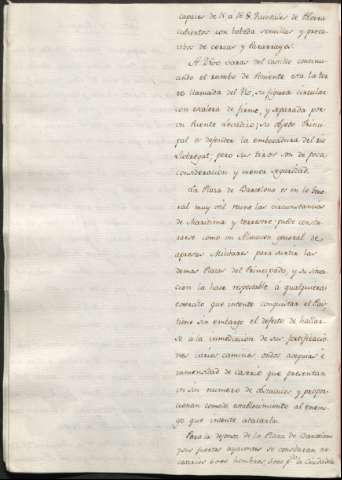 capaces de
cubiertos con bobeda sencillas y
de cercas y Pararrayos.
A varas del castillo continu-
ando el rumbo de Poniente esta la tor
re llamada del Rio, su figura circular
con de firme, y separada por
un Puente Levadizo; su objeto Princi-
pal es defender la embocadura del rio
Llobregat, pero sus tiros son de poca
consideracion y menor seguridad.
La Plaza de Barcelona es en lo Gene-
ral muy util reune las circunstancias
de Maritima y terrestre; puede conside-
rarse como un Almacen general de
aprestos Militares para surtir las
demas Plazas del Principado, y su situa-
cion la hace respetable a qualquiera
exercito que intente conquistar el Pais,
tiene sin embargo el defecto de hallar-
se a la inmediacion de sus fortificacio-
nes varios caminos ondos acequias é
inmensidad de casas que presentan
un sin numero de obstaculos y propor-
cionan comodo establecimiento al enemi-
go que intente atacarla.
Para la defensa de la Plaza de Barcelona
y sus fuertes se consideran ne-
cesarios hombres, la Ciudadela